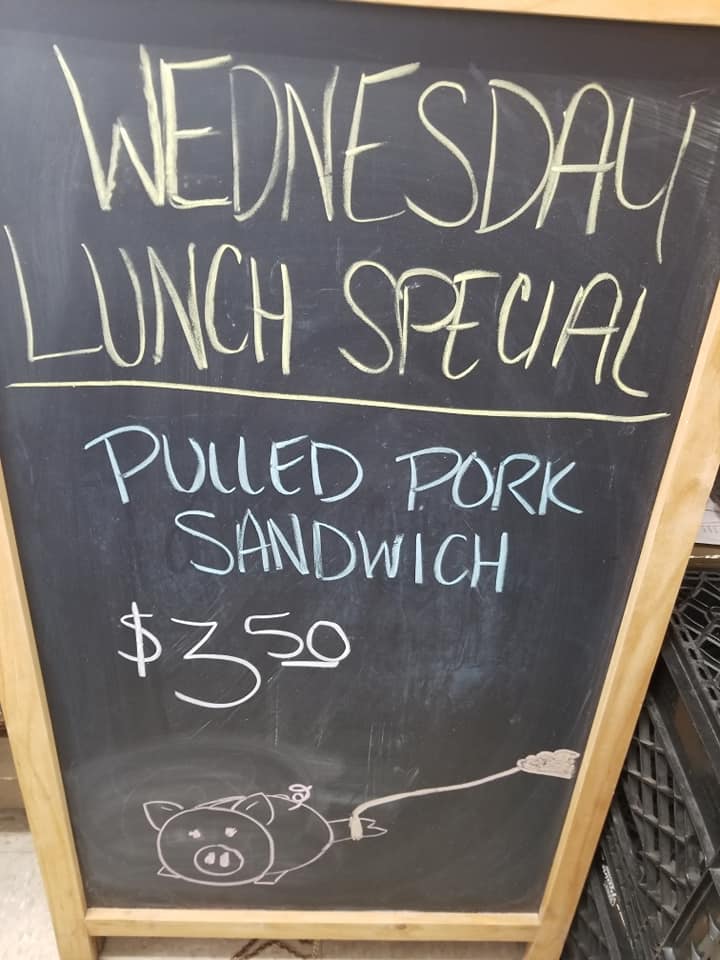 WEDNESDAY
LUNCH SPECIAL
PULLED PORK
SANDWICH
$3 50